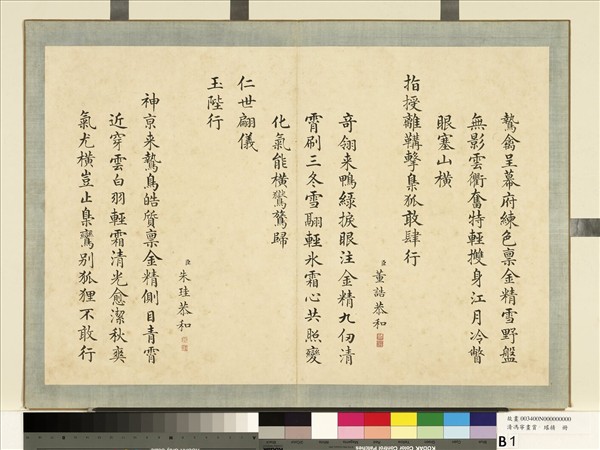 鷙禽呈幕府練色稟金精雪野盤
無影雲衢奮特輕㩳身江月冷瞥
眼塞山橫
指授離鞲擊梟狐敢肆行
臣董誥恭和
奇翎来鴨綠捩眼注金精九仞清
霄刷三冬雪翮輕氷霜心共照變
化氣能橫鷲歸
仁世翩儀
玉陛行
臣朱珪恭和
神亰来鷙鳥皓質稟金精側目青霄
近穿雲白羽輕霜清光愈潔秋爽
氣尤橫豈止梟鸞別狐狸不敢行
故畫003400N000000000
B1
KODAK Color Control Patches